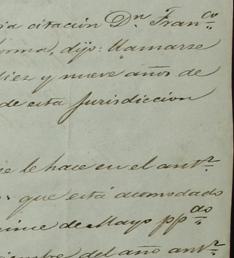 cia citacion Dn. Franco
forma, dijo: llamarse
diez y nueve años de
de esta Jurisdiccion
se le hace en el antr.
que está acomodado
quince de Mayo ppdo
del año antr.